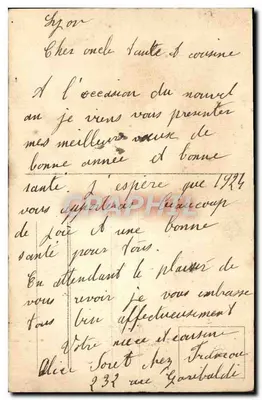 Lyon
Cher oncle tante et cousine
A l'occasion du nouvel
an je viens vous presenter
mes meilleur vœux de
bonne année et bonne
sante. J'espère que 1924
vous beaucoup
de joie et une bonne
santé pour tous.
En attendant le plaisir de
vous revoir je vous embrasse
tous bien affectueusement
Votre nièce et cousine
Alice Soret chez
232 rue Garibaldi